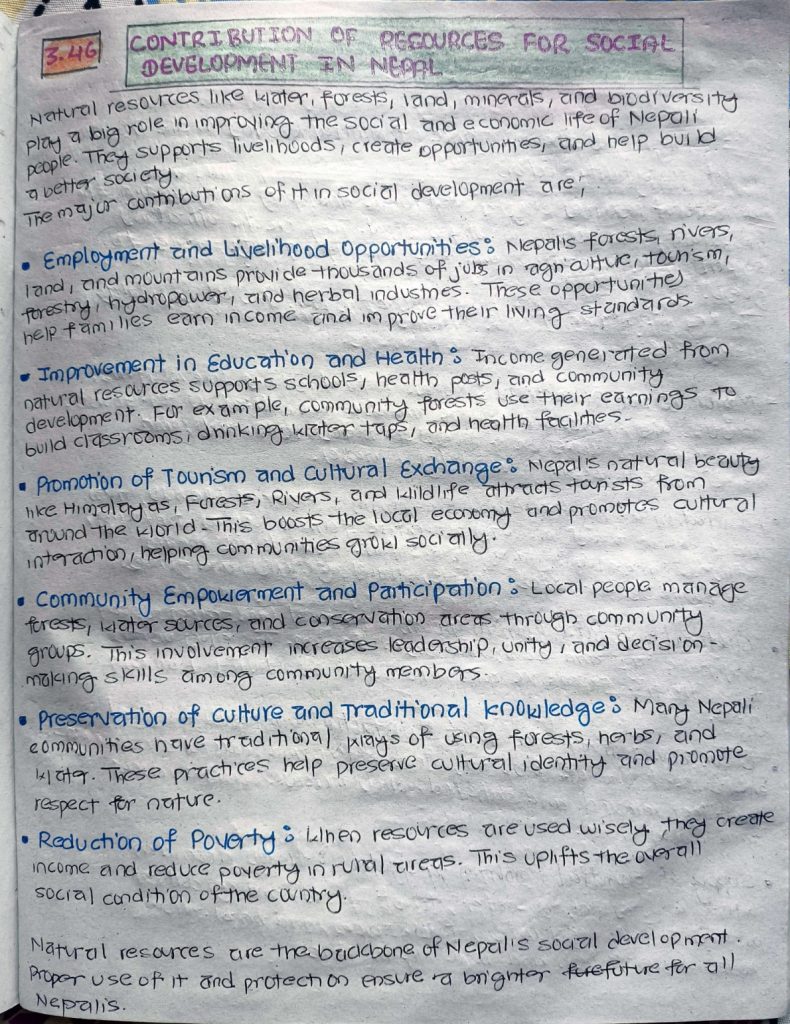 3.46
CONTRIBUTION OF RESOURCES FOR SOCIAL
DEVELOPMENT IN NEPAL
Natural resources like water, forests, land, minerals, and biodiversity
play a big role in improving the social and economic life of Nepali
people. They supports livelihoods, create opportunities, and help build
a better society.
The major contributions of it in social development are;
• Employment and Livelihood Opportunities: Nepal's forests, rivers,
land, and mountains provide thousands of jobs in agriculture, tourism,
forestry, hydropower, and herbal industries. These opportunities
help families earn income and improve their living standards.
• Improvement in Education and Health: Income generated from
natural resources supports schools, health posts, and community
development. For example, community forests use their earnings to
build classrooms, drinking water taps, and health facilities.
• Promotion of Tourism and Cultural Exchange: Nepal's natural beauty
like Himalayas, Forests, Rivers, and Wildlife attracts tourists from
around the world. This boosts the local economy and promotes cultural
interaction, helping communities grow socially.
• Community Empowerment and Participation: Local people manage
forests, water sources, and conservation areas through community
groups. This involvement increases leadership, unity, and decision-
making skills among community members.
• Preservation of Culture and Traditional Knowledge: Many Nepali
communities have traditional ways of using forests, herbs, and
water. These practices help preserve cultural identity and promote
respect for nature.
• Reduction of Poverty: When resources are used wisely, they create
income and reduce poverty in rural areas. This uplifts the overall
social condition of the country.
Natural resources are the backbone of Nepal's social development.
Proper use of it and protection ensure a brighter future for all
Nepalis.